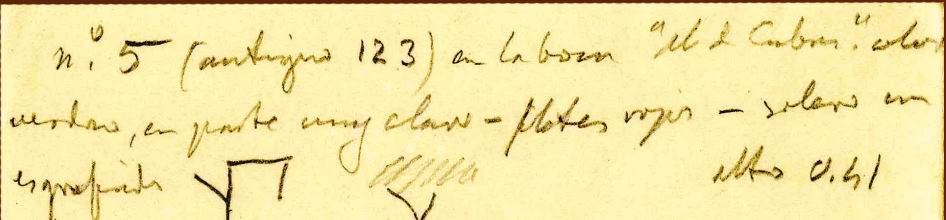 nº. 5 (antiguo 123) en la boca "M d Cubas". color
verdoso, en parte muy claro - flotes rojos - solero con
esgrafiado alto 0.41